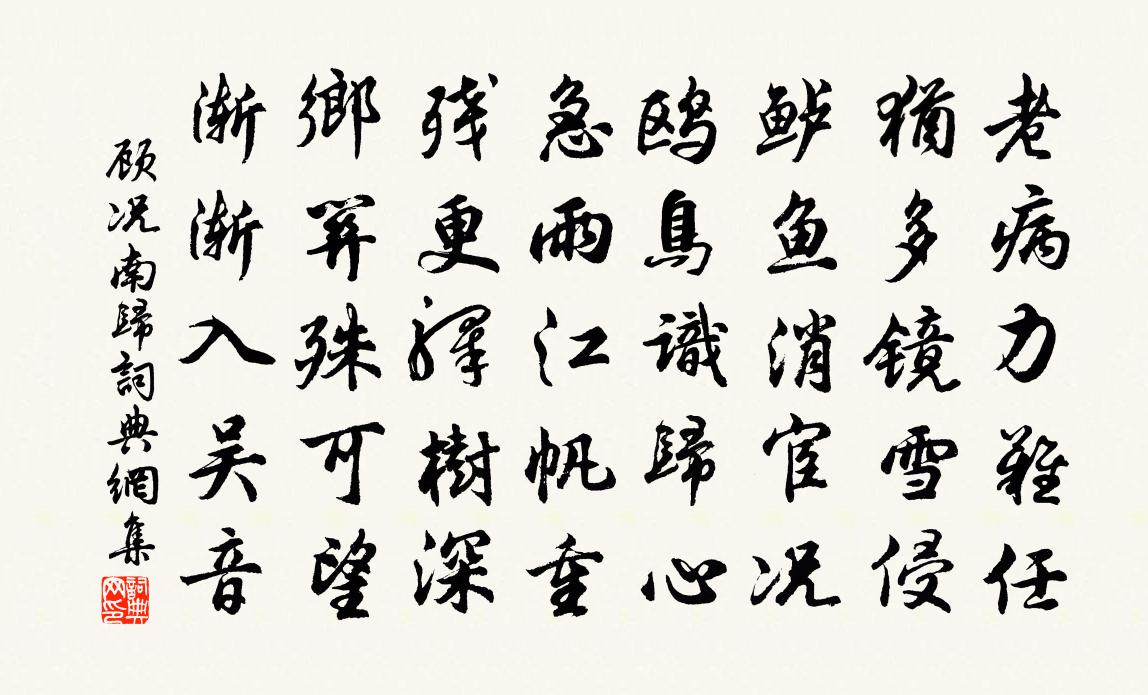 老病力難任
猶多镜雪侵
鲈鱼消宦况
鸥鳥識歸心
急雨江帆重
残更驛樹深
鄉關殊可望
渐渐入吴音
顾况南歸詞典網集
詞典网印